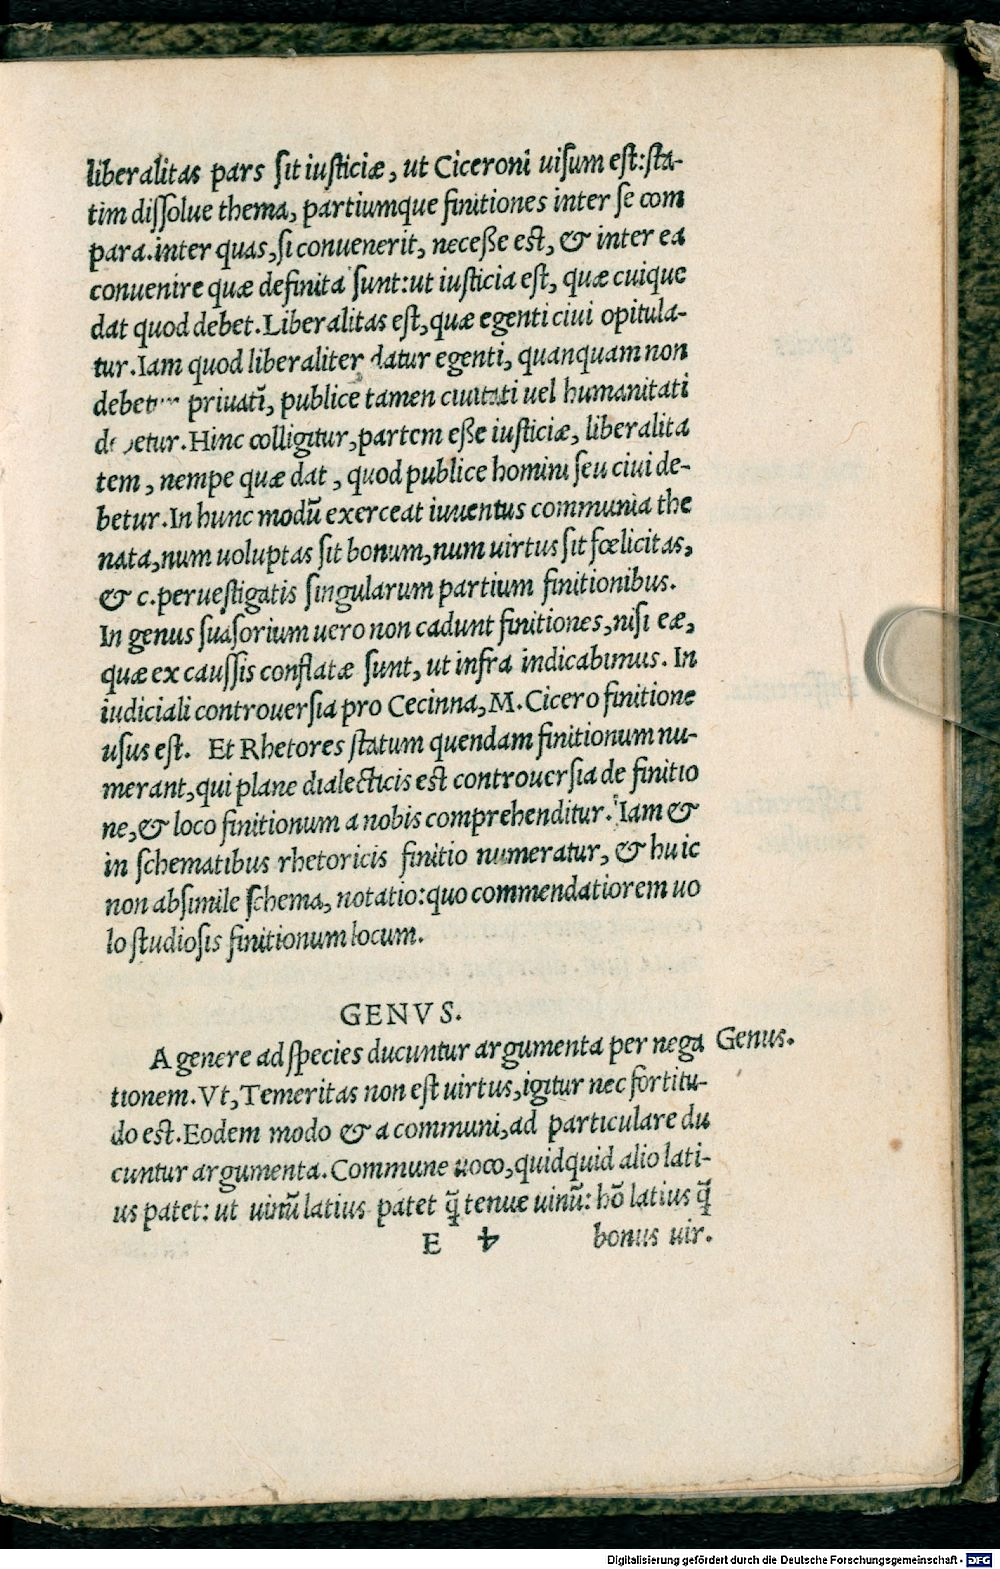 liberalitas pars sit iusticiæ, ut Ciceroni uisum est: sta-
tim dissolue thema, partiumque finitiones inter se com
para. inter quas, si conuenerit, neceße est, & inter ea
conuenire quæ definita sunt: ut iusticia est, quæ cuique
dat quod debet. Liberalitas est, quæ egenti ciui opitula-
tur. Iam quod liberaliter datur egenti, quanquam non
priuatĩ, publice tamen ciuitati uel humanitati
Hinc colligitur, partem eße iusticiæ, liberalita
tem, nempe quæ dat, quod publice homini seu ciui de-
betur. In hunc modũ exerceat iuuentus communia the
nata, num uoluptas sit bonum, num uirtus sit fœlicitas,
& c. peruestigatis singularum partium finitionibus.
In genus suasorium uero non cadunt finitiones, nisi eæ,
quæ ex caussis conflatæ sunt, ut infra indicabimus. In
iudiciali controuersia pro Cecinna, M. Cicero finitione
usus est. Et Rhetores statum quendam finitionum nu-
merant, qui plane dialecticis est controuersia de finitio
ne, & loco finitionum a nobis comprehenditur. Iam &
in schematibus rhetoricis finitio numeratur, & huic
non absimile schema, notatio: quo commendatiorem uo
lo studiosis finitionum locum.
GENVS.
A genere ad species ducuntur argumenta per nega Genus.
tionem. Vt, Temeritas non est uirtus, igitur nec fortitu-
do est. Eodem modo & a communi, ad particulare du
cuntur argumenta. Commune uoco, quidquid alio lati-
us patet: ut uinũ latius patet q̃ tenue uinũ: hõ latius q̃
E 4 bonus uir.
Digitalisierung gefördert durch die Deutsche Forschungsgemeinschaft - DFG